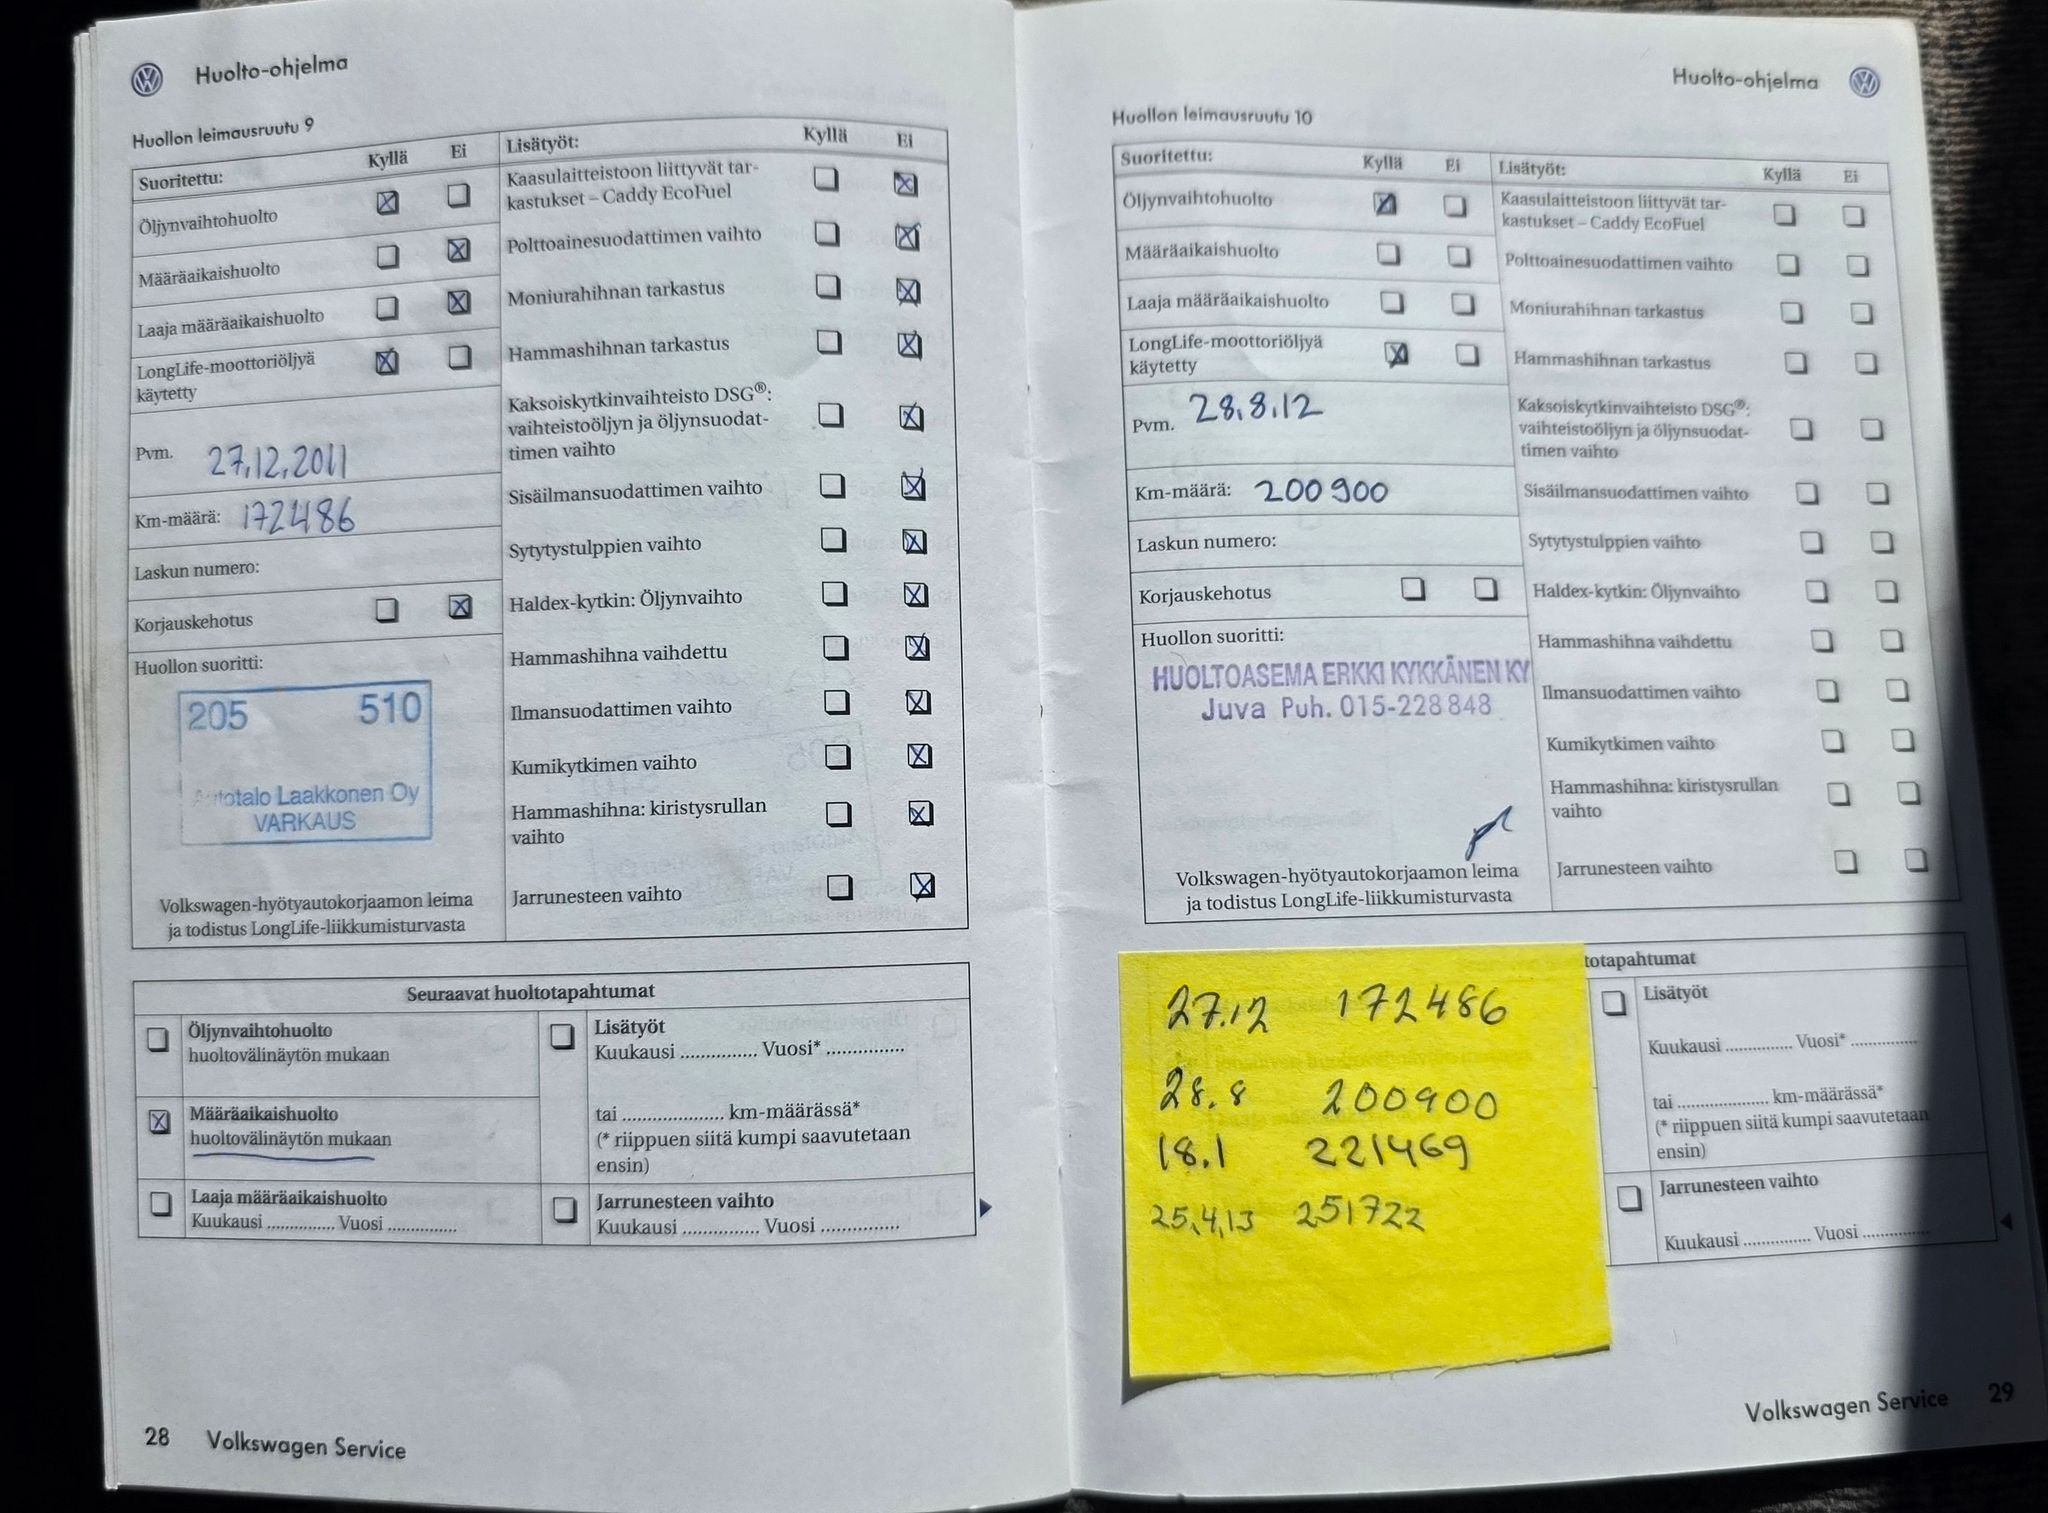 Huolto-ohjelma
Huollon leimausruutu 9
Suoritettu: Kyllä Ei
Öljynvaihtohuolto
Määräaikaishuolto
Laaja määräaikaishuolto
LongLife-moottoriöljyä
käytetty
Pvm. 27.12.2011
Km-määrä: 172486
Laskun numero:
Korjauskehotus
Huollon suoritti:
205 510
Autotalo Laakkonen Oy
VARKAUS
Volkswagen-hyötyautokorjaamon leima
ja todistus LongLife-liikkumisturvasta
Lisätyöt: Kyllä Ei
Kaasulaitteistoon liittyvät tar-
kastukset – Caddy EcoFuel
Polttoainesuodattimen vaihto
Moniurahihnan tarkastus
Hammashihnan tarkastus
Kaksoiskytkinvaihteisto DSG®:
vaihteistoöljyn ja öljynsuodat-
timen vaihto
Sisäilmansuodattimen vaihto
Sytytystulppien vaihto
Haldex-kytkin: Öljynvaihto
Hammashihna vaihdettu
Ilmansuodattimen vaihto
Kumikytkimen vaihto
Hammashihna: kiristysrullan
vaihto
Jarrunesteen vaihto
Seuraavat huoltotapahtumat
Öljynvaihtohuolto
huoltovälinäytön mukaan
Määräaikaishuolto
huoltovälinäytön mukaan
Laaja määräaikaishuolto
Kuukausi ............... Vuosi ...............
Lisätyöt
Kuukausi ............... Vuosi* ...............
tai .................... km-määrässä*
(* riippuen siitä kumpi saavutetaan
ensin)
Jarrunesteen vaihto
Kuukausi ............... Vuosi ...............
28 Volkswagen Service
Huolto-ohjelma
Huollon leimausruutu 10
Suoritettu: Kyllä Ei
Öljynvaihtohuolto
Määräaikaishuolto
Laaja määräaikaishuolto
LongLife-moottoriöljyä
käytetty
Pvm. 28.8.12
Km-määrä: 200900
Laskun numero:
Korjauskehotus
Huollon suoritti:
HUOLTOASEMA ERKKI KYKKÄNEN KY
Juva Puh. 015-228 848
Volkswagen-hyötyautokorjaamon leima
ja todistus LongLife-liikkumisturvasta
Lisätyöt: Kyllä Ei
Kaasulaitteistoon liittyvät tar-
kastukset – Caddy EcoFuel
Polttoainesuodattimen vaihto
Moniurahihnan tarkastus
Hammashihnan tarkastus
Kaksoiskytkinvaihteisto DSG®:
vaihteistoöljyn ja öljynsuodat-
timen vaihto
Sisäilmansuodattimen vaihto
Sytytystulppien vaihto
Haldex-kytkin: Öljynvaihto
Hammashihna vaihdettu
Ilmansuodattimen vaihto
Kumikytkimen vaihto
Hammashihna: kiristysrullan
vaihto
Jarrunesteen vaihto
27.12 172486
28.8 200900
18.1 221469
25.4.13 251722
totapahtumat
Lisätyöt
Kuukausi ............... Vuosi* ...............
tai .................... km-määrässä*
(* riippuen siitä kumpi saavutetaan
ensin)
Jarrunesteen vaihto
Kuukausi ............... Vuosi ...............
Volkswagen Service 29